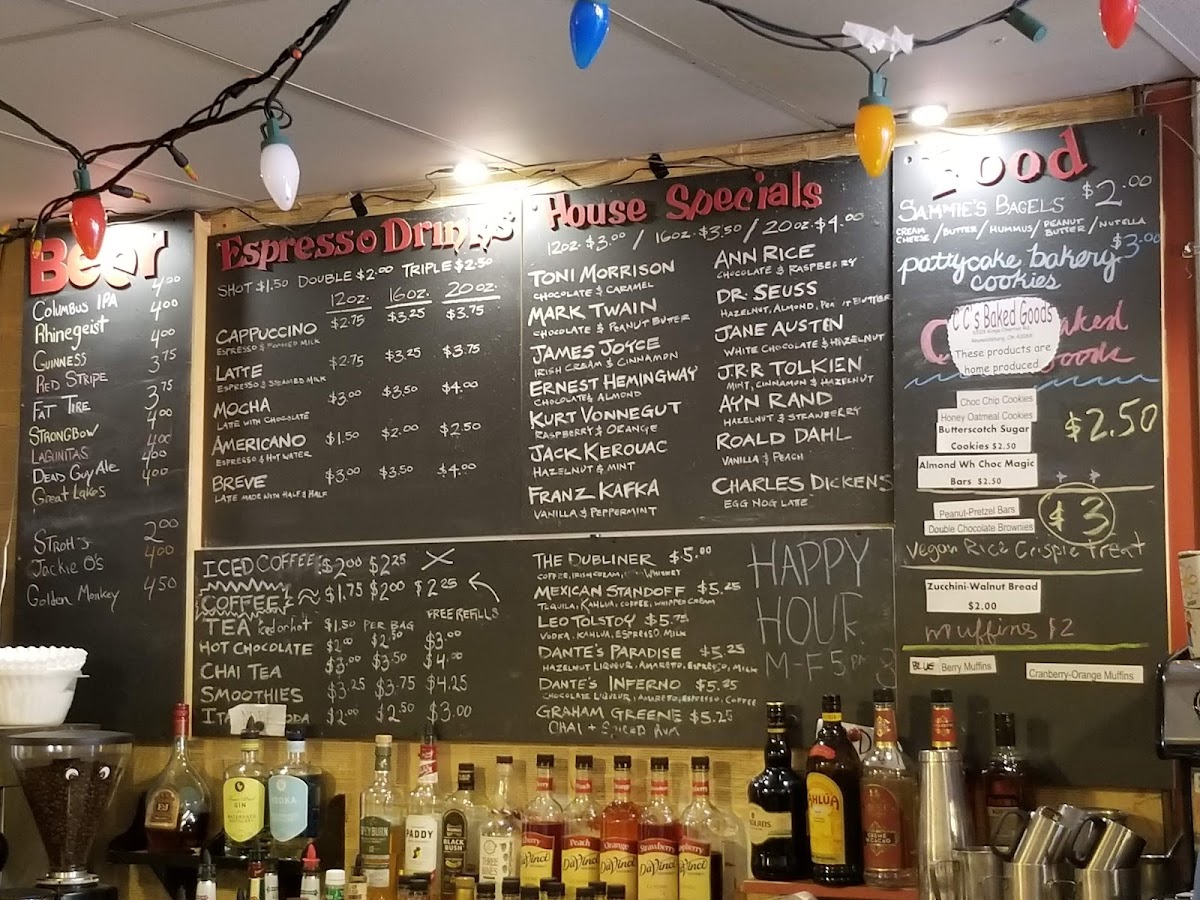 Beer
Columbus IPA 4.00
Rhinegeist 4.00
Guinness 4.00
Red Stripe 3.75
Fat Tire 3.75
Strongbow 4.00
Lagunitas 4.00
Dead Guy Ale 4.00
Great Lakes 4.00
Stroh's 2.00
Jackie O's 4.00
Golden Monkey 4.50
Espresso Drinks
SHOT $1.50 DOUBLE $2.00 TRIPLE $2.50
12oz. 16oz. 20oz.
CAPPUCCINO $2.75 $3.25 $3.75
ESPRESSO & FOAMED MILK
LATTE $2.75 $3.25 $3.75
ESPRESSO & STEAMED MILK
MOCHA $3.00 $3.50 $4.00
LATTE WITH CHOCOLATE
AMERICANO $1.50 $2.00 $2.50
ESPRESSO & HOT WATER
BREVE $3.00 $3.50 $4.00
LATTE MADE WITH HALF & HALF
House Specials
12oz. $3.00 / 16oz. $3.50 / 20oz. $4.00
TONI MORRISON
CHOCOLATE & CARAMEL
MARK TWAIN
CHOCOLATE & PEANUT BUTTER
JAMES JOYCE
IRISH CREAM & CINNAMON
ERNEST HEMINGWAY
CHOCOLATE & ALMOND
KURT VONNEGUT
RASPBERRY & ORANGE
JACK KEROUAC
HAZELNUT & MINT
FRANZ KAFKA
VANILLA & PEPPERMINT
ANN RICE
CHOCOLATE & RASPBERRY
DR. SEUSS
HAZELNUT, ALMOND, PEANUT BUTTER
JANE AUSTEN
WHITE CHOCOLATE & HAZELNUT
J.R.R TOLKIEN
MINT, CINNAMON & HAZELNUT
AYN RAND
HAZELNUT & STRAWBERRY
ROALD DAHL
VANILLA & PEACH
CHARLES DICKENS
EGG NOG LATTE
ICED COFFEE $2.00 $2.25
COFFEE $1.75 $2.00 $2.25
FREE REFILLS
TEA iced or hot $1.50 PER BAG
HOT CHOCOLATE $2.00 $2.50 $3.00
CHAI TEA $3.00 $3.50 $4.00
SMOOTHIES $3.25 $3.75 $4.25
$2.00 $2.50 $3.00
THE DUBLINER $5.00
COFFEE, IRISH CREAM, WHISKEY
MEXICAN STANDOFF $5.25
TEQUILA, KAHLUA, COFFEE, WHIPPED CREAM
LEO TOLSTOY $5.75
VODKA, KAHLUA, ESPRESSO, MILK
DANTE'S PARADISE $5.25
HAZELNUT LIQUEUR, AMARETTO, ESPRESSO, MILK
DANTE'S INFERNO $5.25
CHOCOLATE LIQUEUR, AMARETTO, ESPRESSO, COFFEE
GRAHAM GREENE $5.25
CHAI + SPICED RUM
HAPPY
HOUR
M-F 5pm
Food
SAMMIE'S BAGELS $2.00
CREAM CHEESE / BUTTER / HUMMUS / PEANUT BUTTER / NUTELLA
pattycake bakery $3.00
cookies
CC's Baked Goods
These products are
home produced
Choc Chip Cookies
Honey Oatmeal Cookies
Butterscotch Sugar
Cookies $2.50
$2.50
Almond Wh Choc Magic
Bars $2.50
Peanut-Pretzel Bars
Double Chocolate Brownies
$3
Vegan Rice Crispie Treat
Zucchini-Walnut Bread
$2.00
muffins $2
BLUE Berry Muffins
Cranberry-Orange Muffins
GIN
VODKA
PADDY
BLACK BUSH
DaVinci
Peach
DaVinci
Orange
DaVinci
Strawberry
DaVinci
DaVinci